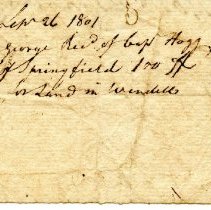 Sepr 26 1801
George Recd of Capt Hogg
of Springfield 150
for Land in Wendell